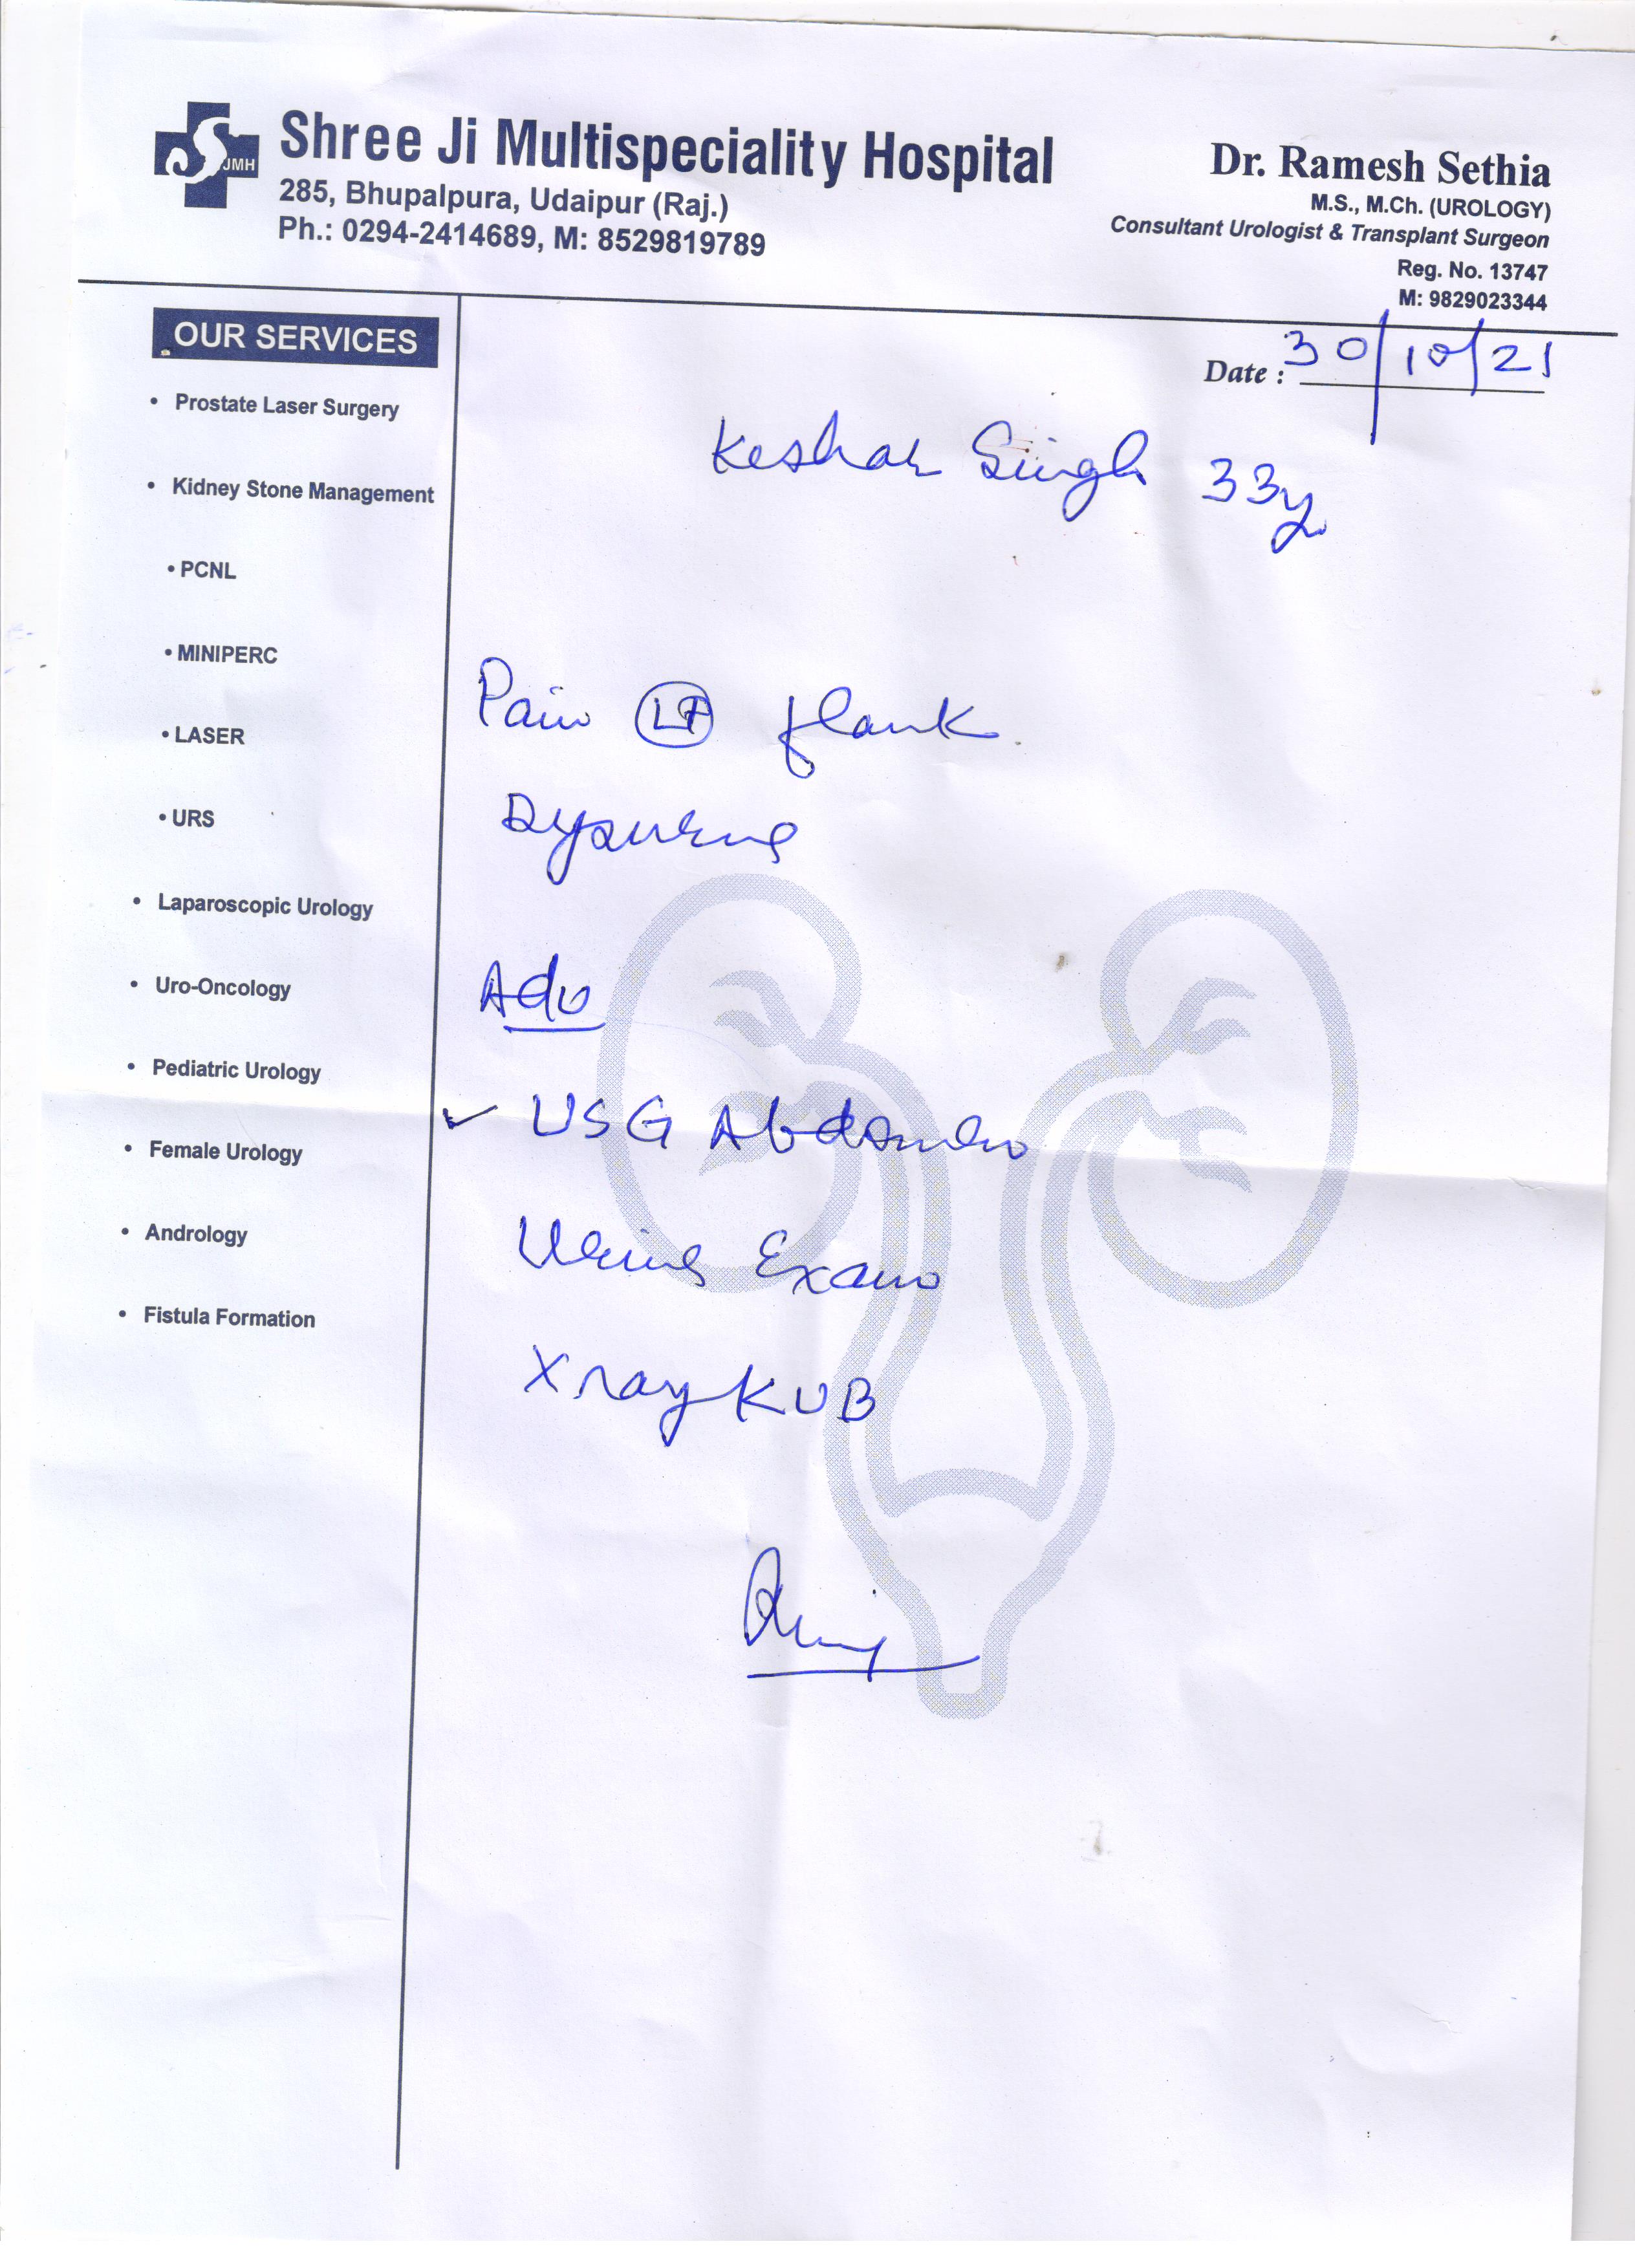 JMH
Shree Ji Multispeciality Hospital
285, Bhupalpura, Udaipur (Raj.)
Ph.: 0294-2414689, M: 8529819789
Dr. Ramesh Sethia
M.S., M.Ch. (UROLOGY)
Consultant Urologist & Transplant Surgeon
Reg. No. 13747
M: 9829023344
Date : 30/10/21
OUR SERVICES
• Prostate Laser Surgery
• Kidney Stone Management
• PCNL
• MINIPERC
• LASER
• URS
• Laparoscopic Urology
• Uro-Oncology
• Pediatric Urology
• Female Urology
• Andrology
• Fistula Formation
Keshar Singh 33y
Pain Lt flank
Dysuria
Adv
✓ USG Abdomen
Urine Exam
Xray KUB